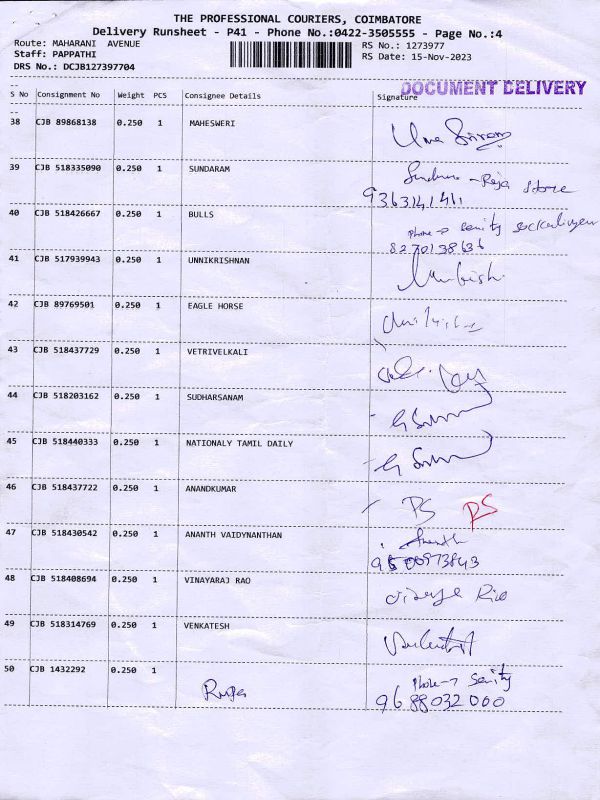 THE PROFESSIONAL COURIERS, COIMBATORE
Delivery Runsheet - P41 - Phone No.:0422-3505555 - Page No.:4
Route: MAHARANI AVENUE
Staff: PAPPATHI
DRS No.: DCJB127397704
RS No.: 1273977
RS Date: 15-Nov-2023
DOCUMENT DELIVERY
S No Consignment No Weight PCS Consignee Details Signature
38 CJB 89868138 0.250 1 MAHESWERI
39 CJB 518335090 0.250 1 SUNDARAM
Raja Store
9363141411
40 CJB 518426667 0.250 1 BULLS
Phone → Senity
8270138636
41 CJB 517939943 0.250 1 UNNIKRISHNAN
42 CJB 89769501 0.250 1 EAGLE HORSE
43 CJB 518437729 0.250 1 VETRIVELKALI
44 CJB 518203162 0.250 1 SUDHARSANAM
45 CJB 518440333 0.250 1 NATIONALY TAMIL DAILY
46 CJB 518437722 0.250 1 ANANDKUMAR
RS
47 CJB 518430542 0.250 1 ANANTH VAIDYNANTHAN
48 CJB 518408694 0.250 1 VINAYARAJ RAO
49 CJB 518314769 0.250 1 VENKATESH
50 CJB 1432292 0.250 1
Phone → Senity
9688032000